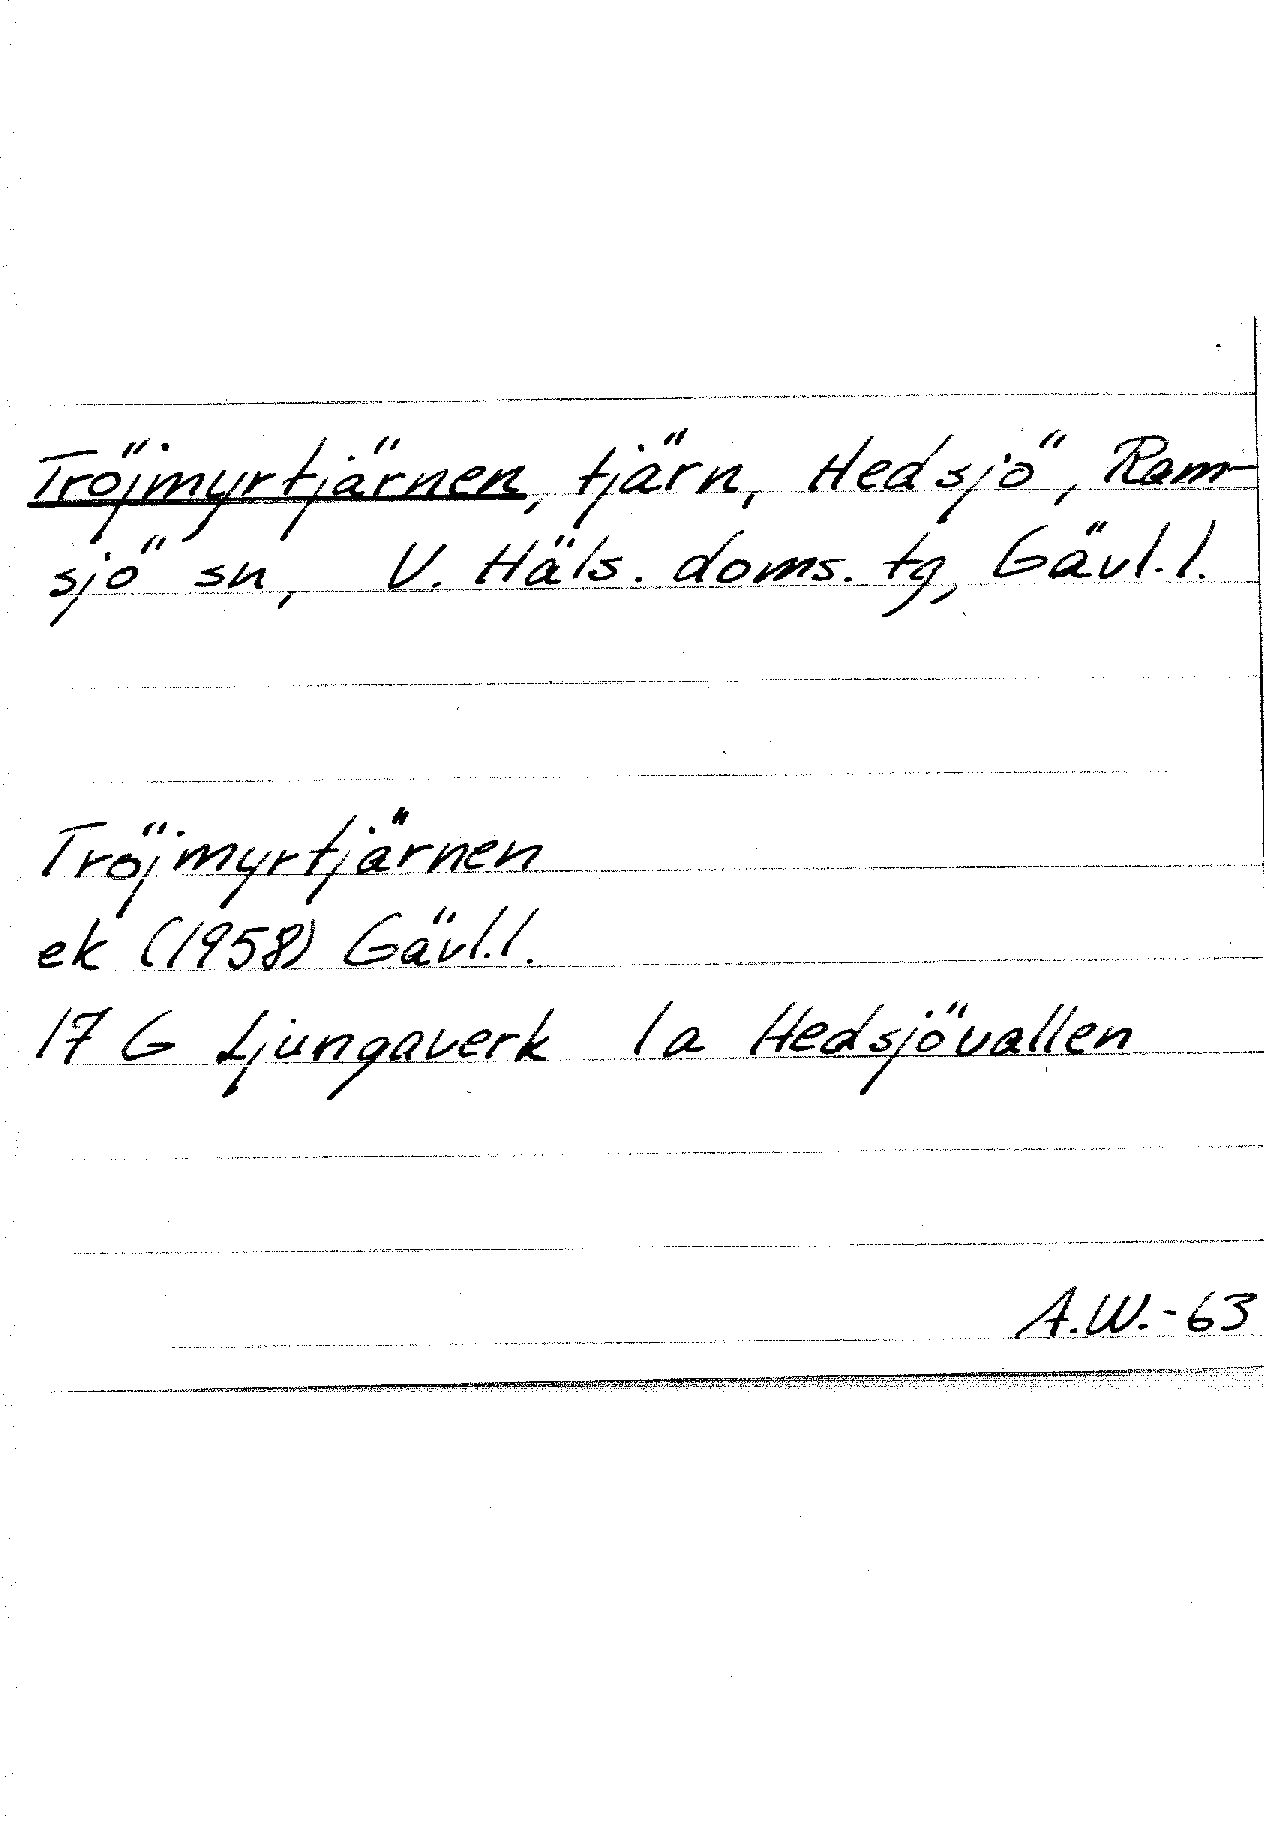 Tröjmyrtjärnen, tjärn, Hedsjö, Ram-
sjö sn, V. Häls. doms. tg, Gävl. l.
Tröjmyrtjärnen
ek (1958) Gävl. l.
17 G Ljungaverk 1a Hedsjövallen
A.W.-63